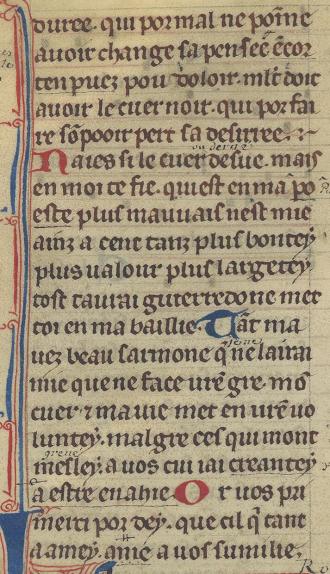 duree. qui por mal ne poĩne
auoir change sa pensee ẽcor
ten puez pou doloir. ml̃t doit
auoir le cuer noir. qui por fai
re sõ pooir pert sa desirree.
Naies si le cuer desue. mais
en moi te fie. qui est en ma
este plus mauuais nest mie
ainz a cent tanz plus bontey
plus ualour plus largetey
tost taurai guerredone met
toi en ma baillie. Tãt ma
uez beau sarmone q̃ ne lairai
mie que ne face ur̃e gre. mõ
cuer ⁊ ma uie met en ur̃e uo
luntey. malgre ces qui mont
mesley. a uos cui iai creantey
a estre en ahie Or uos pri
merci por dey. que cil q̃ tant
a amey. amie a uos sumilie.